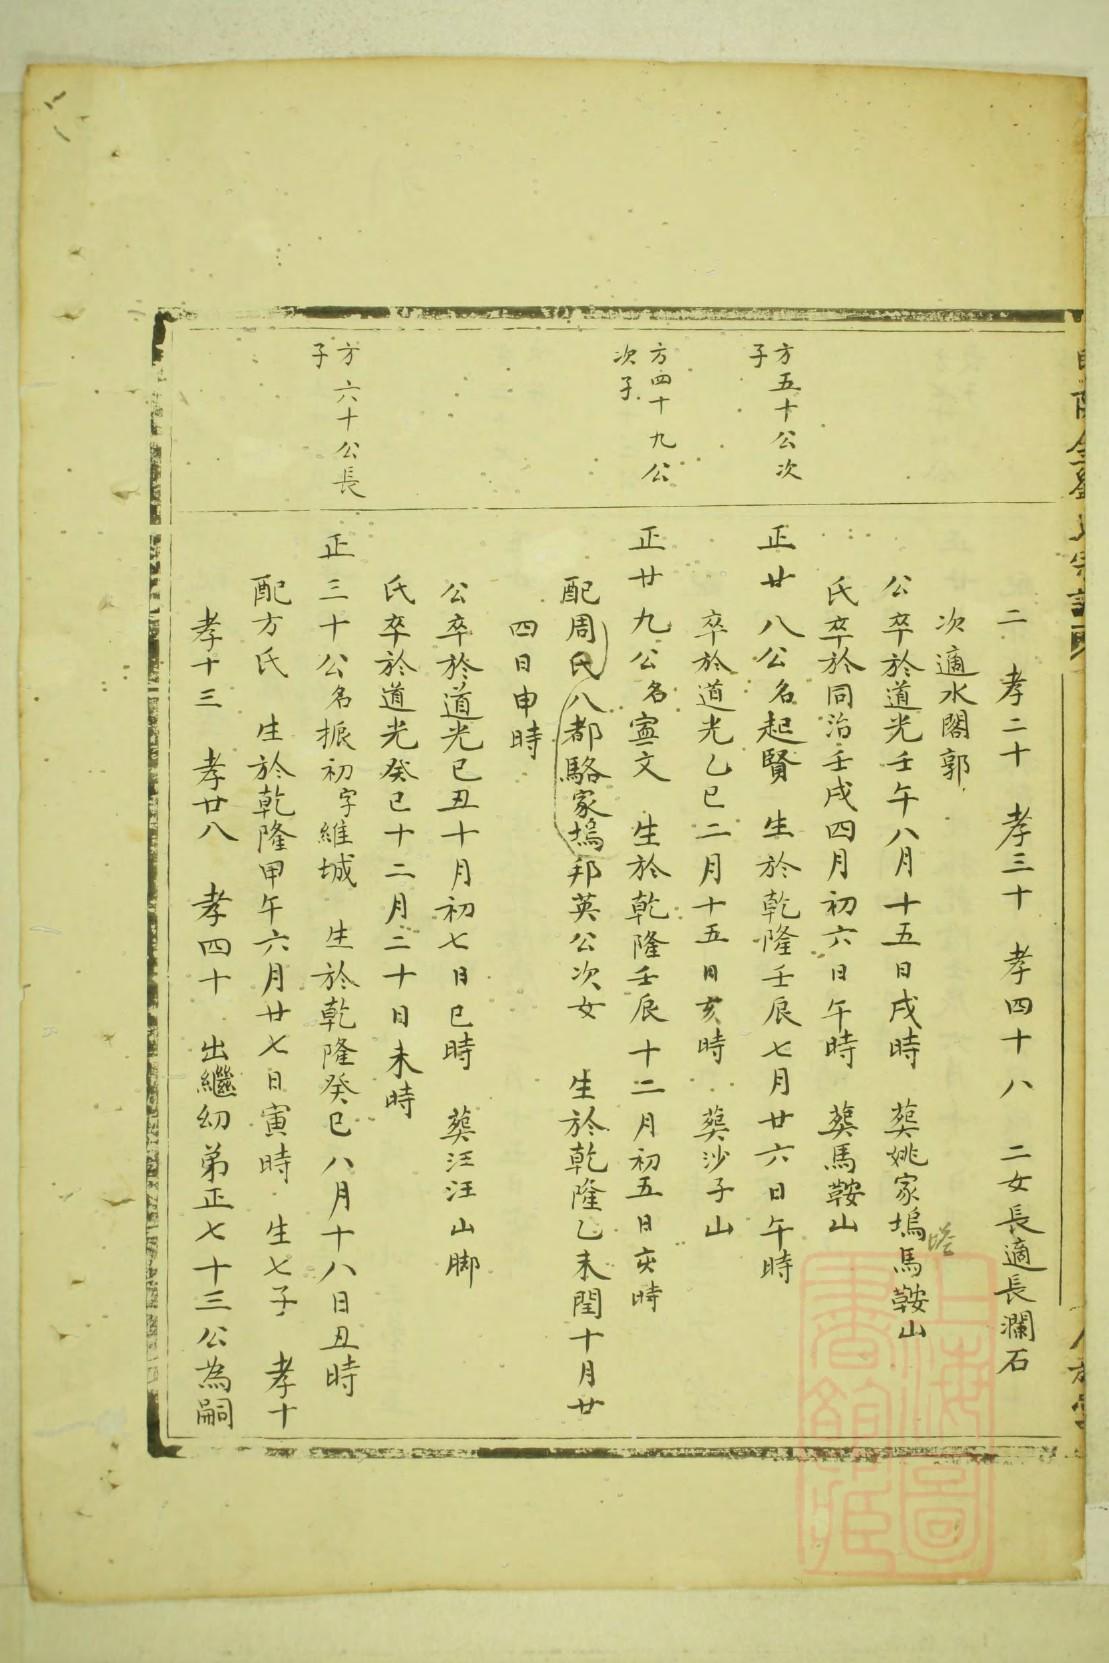 二　孝二十　孝三十　孝四十八　二女長適長瀾石
次適水閣郭
公卒於道光壬午八月十五日戌時　葬姚家塢馬鞍山
氏卒於同治壬戌四月初六日午時　葬馬鞍山
方五十公次子
正廿八公名起賢　生於乾隆壬辰七月廿六日午時
卒於道光乙巳二月十五日亥時　葬沙子山
方四十九公次子
正廿九公名寗文　生於乾隆壬辰十二月初五日亥時
配周氏八都駱家塢邦英公次女　生於乾隆乙未閏十月廿
四日申時
公卒於道光己丑十月初七日巳時　葬汪汪山脚
氏卒於道光癸巳十二月二十日未時
方六十公長子
正三十公名振初字維城　生於乾隆癸巳八月十八日丑時
配方氏　生於乾隆甲午六月廿七日寅時　生七子　孝十
孝十三　孝廿八　孝四十　出繼幼弟正七十三公為嗣
上海圖書館藏